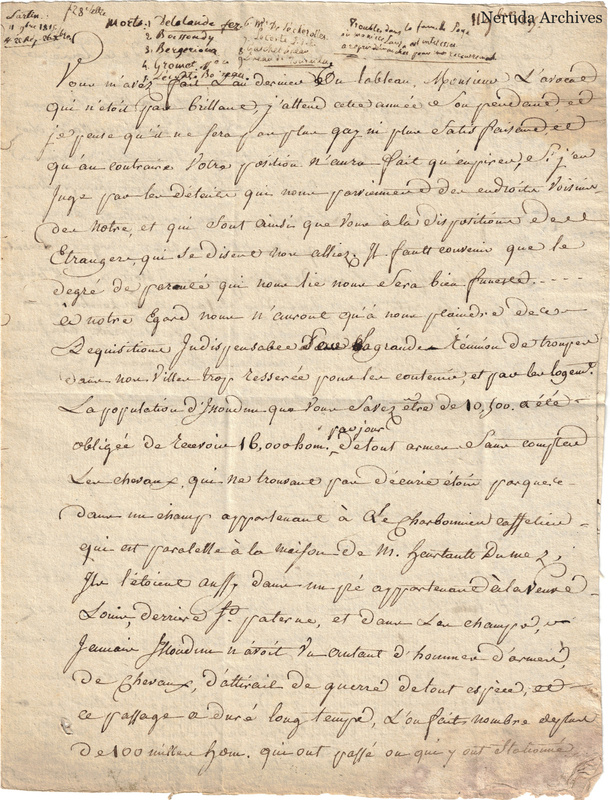 Neruda Archives
Morts. 1 Delalande
2 Boissondy
4. Gromot
Vous m'avez fait L'an dernier Un tableau, Monsieur L'avocat
qui n'étoit pas brillant, j'attend cette année Son pendant et
je pense qu'il ne Sera pas plus gay ni plus Satisfaisant et
qu'au contraire Votre position n'aura fait qu'empirer, Si j'en
Juge par les détails qui nous parviennent des endroits Voisins
du notre, et qui Sont ainsi que Vous à la disposition des
Etrangers qui se disent nos alliez. Il fault convenir que le
degré de parenté qui nous lie nous Sera bien funeste. - - - -
à notre Egard nous n'aurons qu'à nous plaindre des
Requisitions Indispensables Pour La grande Réunion de troupes
dans nos Villes trop resserrée pour les contenir, et par les logem.ts
La population d'Issoudun que Vous Savez être de 10,500. a été
obligée de recevoir 16,000 hom. par jour de tout armes Sans compter
Les chevaux, qui ne trouvant pas d'écurie étoient parqués
dans un champ appartenant à Le Charbonnier caffetier
qui est paralelle à la maison de M. Heurtault Dumez,
Ils l'étoient aussy dans un pré appartenant à la Veuve
Loire, derriere S.t paterne, et dans Les champs,
Jamais Issoudun n'avoit Vu autant d'hommes d'armes,
de Chevaux, d'attirail de guerre de tout espèce, et
ce passage a duré long temps, L'on fait nombre de plus
de 100 milles hom. qui ont passé ou qui y ont Stationné